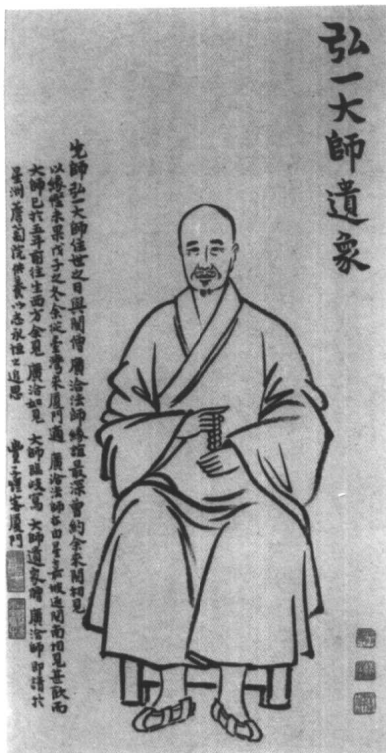 弘一大師遺象
先師弘一大師住世之日與閩僧 廣洽法師緣誼最深曾約余來閩相見
以緣慳未果戊子之冬余從臺灣來廈門適 廣洽法師亦由星嘉坡返閩南相見甚歡而
大師已於五年前往生西方余見 廣洽如見 大師臨岐寫 大師遺象贈 廣洽師即請於
星洲薝蔔院供養以志永恒之追思 豐子愷客廈門